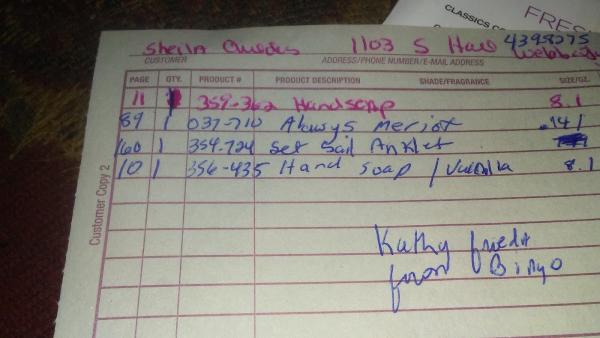 CLASSICS C
FRES
Sheila 1103 S Hall 4398275
CUSTOMER ADDRESS/PHONE NUMBER/E-MAIL ADDRESS
PAGE QTY. PRODUCT # PRODUCT DESCRIPTION SHADE/FRAGRANCE SIZE/GZ.
11 359-362 Handsoap 8.1
89 1 037-710 Always Meriot .141
60 1 354-724 Set Sail Anklet
10 1 356-435 Hand Soap / Vanilla 8.1
Customer Copy 2
Kathy friedt
from Bingo